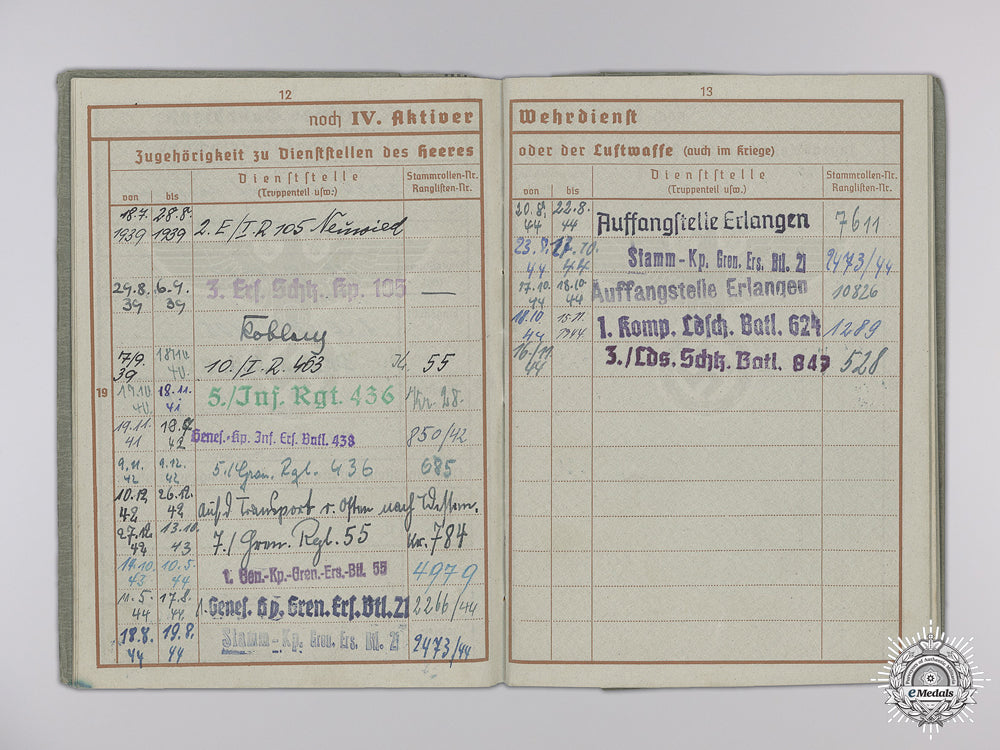 12
noch IV. Aktiver
Zugehörigkeit zu Dienststellen des Heeres
von
bis
Dienststelle
(Truppenteil usw.)
Stammrollen-Nr.
Ranglisten-Nr.
18.7. 1939 28.8. 1939 2. E/I.R 105 Neuwied
29.8. 39 6.9. 39 3. Ers. Schtz. Kp. 105 —
Koblenz
7/9. 39 40. 10./I.R. 463 55
19
40. 18.11. 41 5./Inf. Rgt. 436 28.
19.11. 41 42 Genes.-Kp. Inf. Ers. Batl. 438 850/42
9.11. 42 9.12. 42 5./Gren. Rgt. 436 685
10.12. 42 26.12. 42 auf d Transport v. Osten nach Westen.
27.12. 42 13.10. 43 7./Gren. Rgt. 55 Nr. 784
14.10. 43 10.5. 44 1. Gen.-Kp.-Gren.-Ers.-Btl. 55 4979
11.5. 44 17.8. 44 1. Genes. Kp. Gren. Ers. Btl. 21 2266/44
18.8. 44 19.8. 44 Stamm-Kp. Gren. Ers. Btl. 21 2473/44
13
Wehrdienst
oder der Luftwaffe (auch im Kriege)
von
bis
Dienststelle
(Truppenteil usw.)
Stammrollen-Nr.
Ranglisten-Nr.
20.8. 44 22.8. 44 Auffangstelle Erlangen 7611
23.8. 44 17.10. 44 Stamm-Kp. Gren. Ers. Btl. 21 2473/44
17.10. 44 18.10. 44 Auffangstelle Erlangen 10826
18.10. 44 15.11. 1944 1. Komp. Ldsch. Batl. 624 1289
16/11. 44 3./Lds. Schtz. Batl. 847 528
eMedals